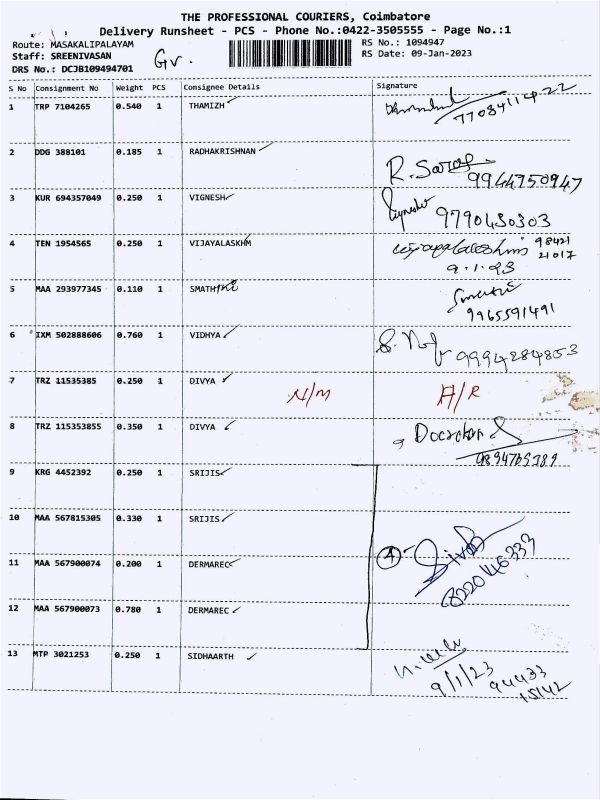 THE PROFESSIONAL COURIERS, Coimbatore
Delivery Runsheet - PCS - Phone No.:0422-3505555 - Page No.:1
Route: MASAKALIPALAYAM RS No.: 1094947
Staff: SREENIVASAN Gv. RS Date: 09-Jan-2023
DRS No.: DCJB109494701
S No Consignment No Weight PCS Consignee Details Signature
1 TRP 7104265 0.540 1 THAMIZH
7708411422
2 DDG 388101 0.185 1 RADHAKRISHNAN R. Saroj
9944750947
3 KUR 694357049 0.250 1 VIGNESH Vignesh 9790430303
4 TEN 1954565 0.250 1 VIJAYALASKHM vijayalakshmi 98421
21017
9.1.23
5 MAA 293977345 0.110 1 SMATHI
9965591491
6 IXM 502888606 0.760 1 VIDHYA
9994284853
7 TRZ 11535385 0.250 1 DIVYA N/M A/R
8 TRZ 115353855 0.350 1 DIVYA
9894765389
9 KRG 4452392 0.250 1 SRIJIS
10 MAA 567815305 0.330 1 SRIJIS
11 MAA 567900074 0.200 1 DERMAREC 4 Siva
8220416333
12 MAA 567900073 0.780 1 DERMAREC
13 MTP 3021253 0.250 1 SIDHAARTH
9/1/23 94433
15142